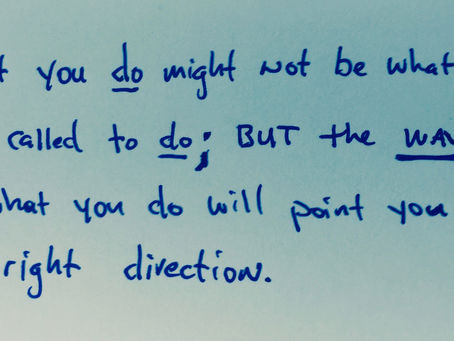 you do might not be what
called to do; BUT the
what you do will point you
right direction.